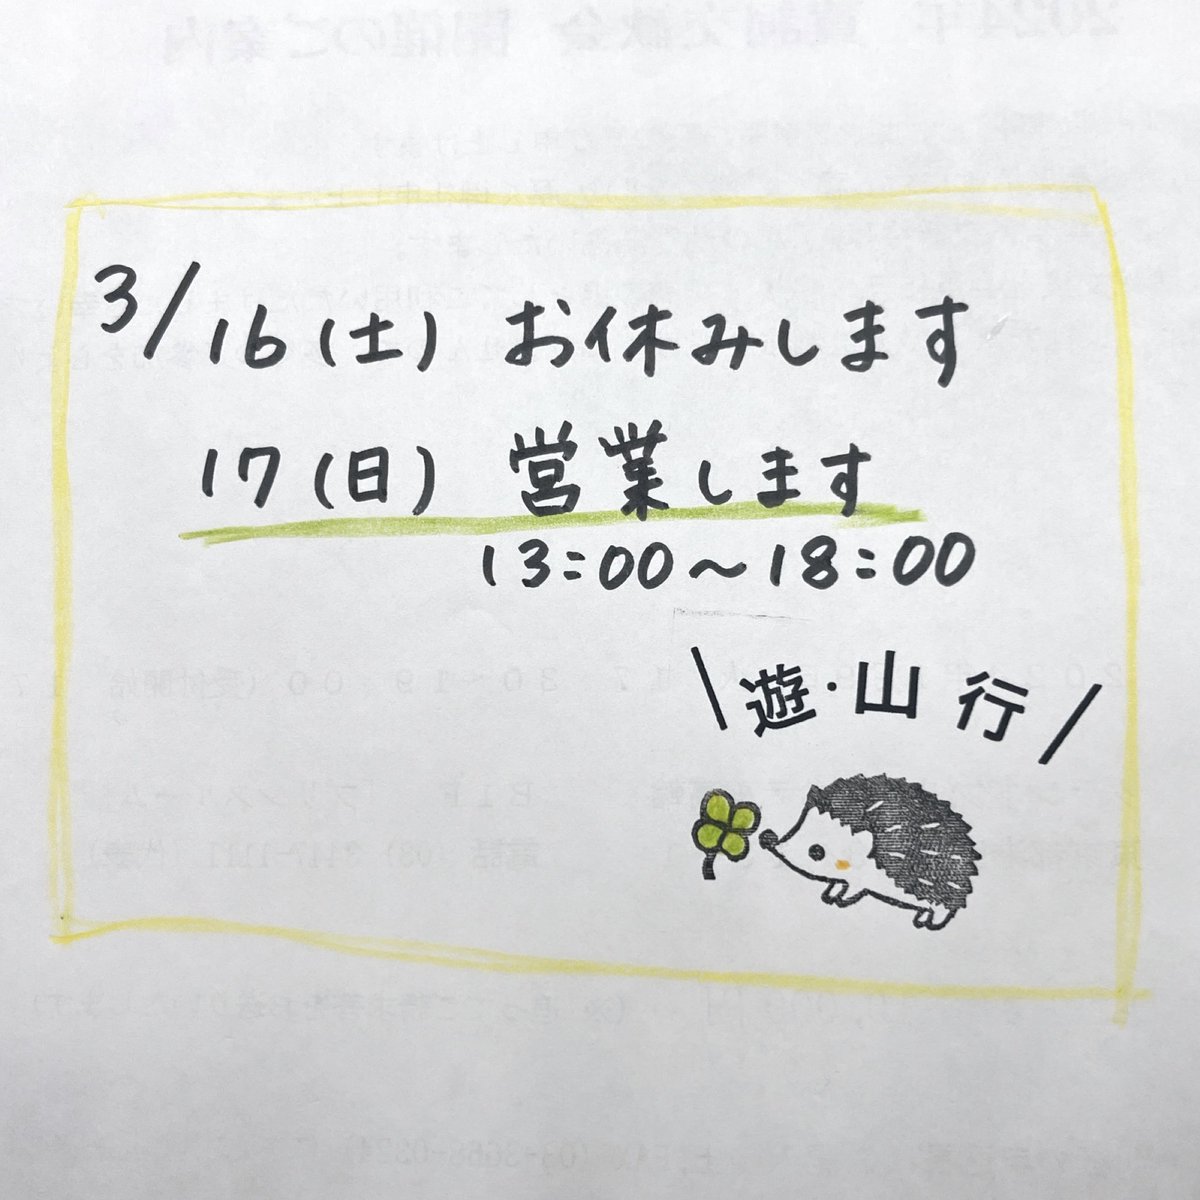 3/16(土) お休みします
17(日) 営業します
13:00～18:00
\遊・山行/